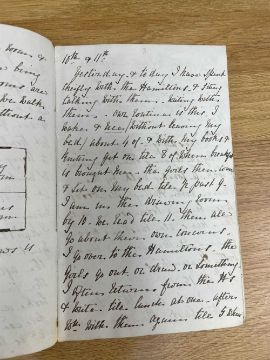 10th & 11th
Yesterday & to day I have spent
chiefly with the Hamiltons, & sitting
talking with them. eating with
them. our routine is this I
wake & read (without leaving my
bed) about 4 of. & with my books &
knitting get on till 8 when breakfast
is brought me. the girls then come
& sit on my bed till 1/2 past 9.
I am in the drawing room
by 10. we read till 11. then all
go about their own concerns.
I go over to the Hamiltons. the
girls go out or draw. or something.
I often return from the H's
& write till lunch at one. after
with them again till 5 when
down &
being
are
we walk
without a
is